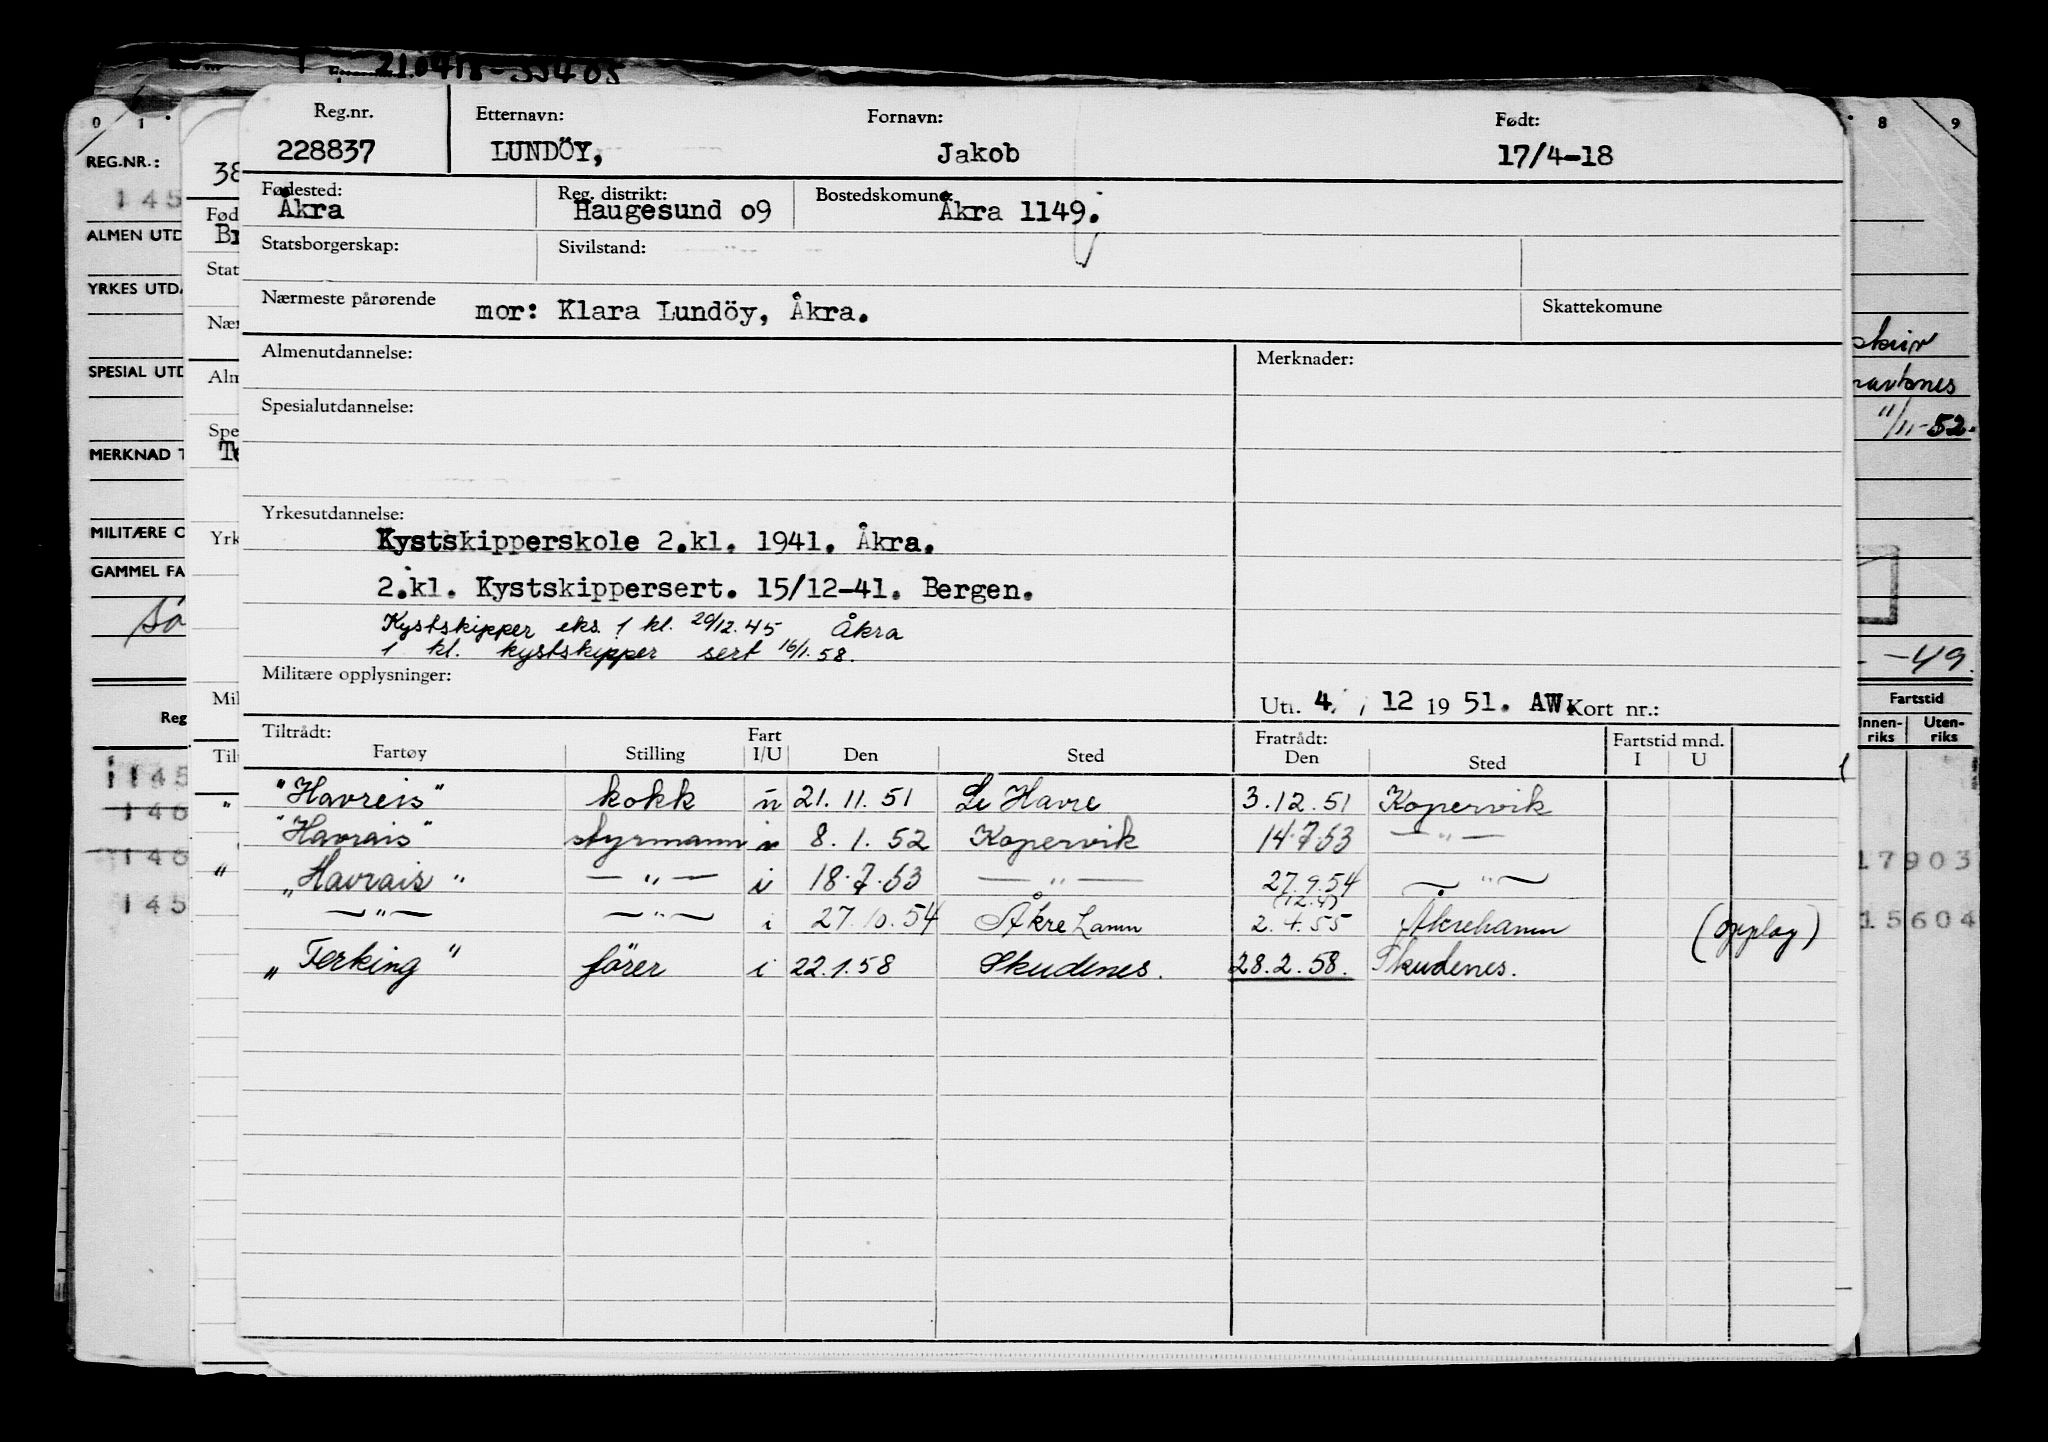 210418-33405
Reg.nr. Etternavn: Fornavn: Født:
228837 LUNDÖY, Jakob 17/4-18
Fødested: Reg. distrikt: Bostedskomune:
Åkra Haugesund o9 Åkra 1149.
Statsborgerskap: Sivilstand:
Nærmeste pårørende mor: Klara Lundöy, Åkra. Skattekomune
Almenutdannelse: Merknader:
Spesialutdannelse:
Yrkesutdannelse:
Kystskipperskole 2.kl. 1941. Åkra.
2.kl. Kystskippersert. 15/12-41. Bergen.
Kystskipper eks. 1 kl. 20/12.45 Åkra
1 kl. kystskipper sert 16/1.58.
Militære opplysninger:
Utf. 4/ 12 19 51. AW. Kort nr.:
Tiltrådt: Fart Fratrådt: Fartstid mnd.
Fartøy Stilling I/U Den Sted Den Sted I U
"Havreis" kokk u 21.11.51 Le Havre 3.12.51 Kopervik
"Havrais" styrmann u 8.1.52 Kopervik 14.7.53 —"—
"Havrais" —"— i 18.7.53 —"— 27.9.54 —"—
(12.4)
—"— —"— i 27.10.54 Åkrehamn 2.4.55 Åkrehamn (opplag)
"Ferking" fører i 22.1.58 Skudenes. 28.2.58. Skudenes.
0 1
REG.NR.:
145
ALMEN UTD
YRKES UTDA
SPESIAL UTD
MERKNAD T
MILITÆRE O
GAMMEL FA
Reg
1145
146
146
145
38
Fød
Br
Stat
Nær
Alm
Spe
Te
Yrk
Mil
Til
8 9
11/11-52.
-49.
Fartstid
Innen-riks Uten-riks
17903
15604